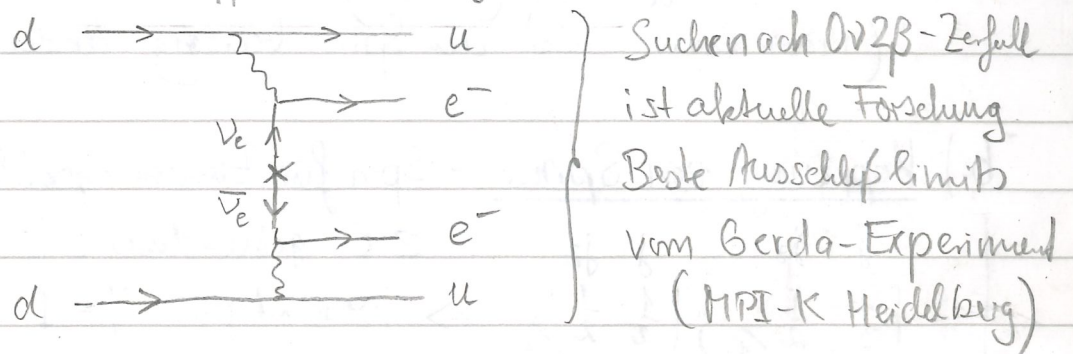 d u Suche nach 0ν2β-Zerfall
e⁻ ist aktuelle Forschung
νₑ
ν̄ₑ Beste Ausschlußlimits
e⁻ vom Gerda-Experiment
d u (MPI-K Heidelberg)